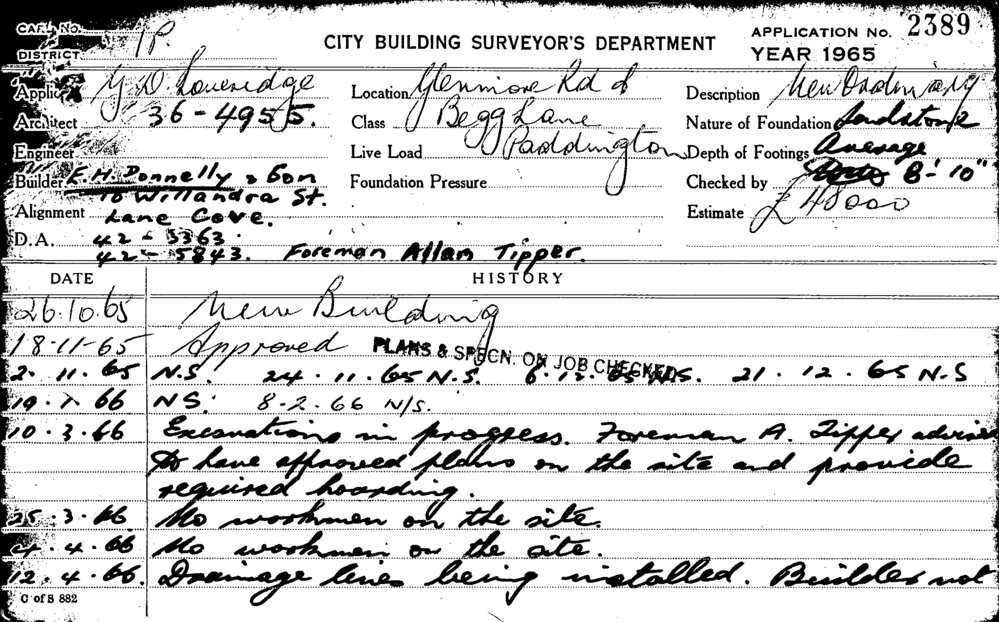 CARD No.
1P.
CITY BUILDING SURVEYOR'S DEPARTMENT
APPLICATION No. 2389
YEAR 1965
DISTRICT
Applic G. D. Loveridge
Location Glenmore Rd &
Description New Ordinary
Architect 36-4955.
Class Begg Lane
Nature of Foundation Sandstone
Engineer
Live Load Paddington
Depth of Footings Average
Builder E. H. Donnelly & Son
Foundation Pressure
Checked by 8'-10"
10 Willandra St.
Alignment Lane Cove.
Estimate £48000
D.A. 42-3363.
42-5843. Foreman Allam Tipper.
DATE HISTORY
26.10.65 New Building
18-11-65 Approved PLANS & SPECN. ON JOB CHECKED
2. 11. 65 N.S. 24. 11. 65 N.S. 6. 12. 65 N.S. 21. 12. 65 N-S
19. 1. 66 NS. 8-2.66 N/S.
10.3.66 Excavations in progress. Foreman A. Tipper advised
to have approved plans on the site and provide
required hoarding.
25.3.66 No workmen on the site.
4.4.66 No workmen on the site.
12.4.66. Drainage lines being installed. Builder not
C of S 882